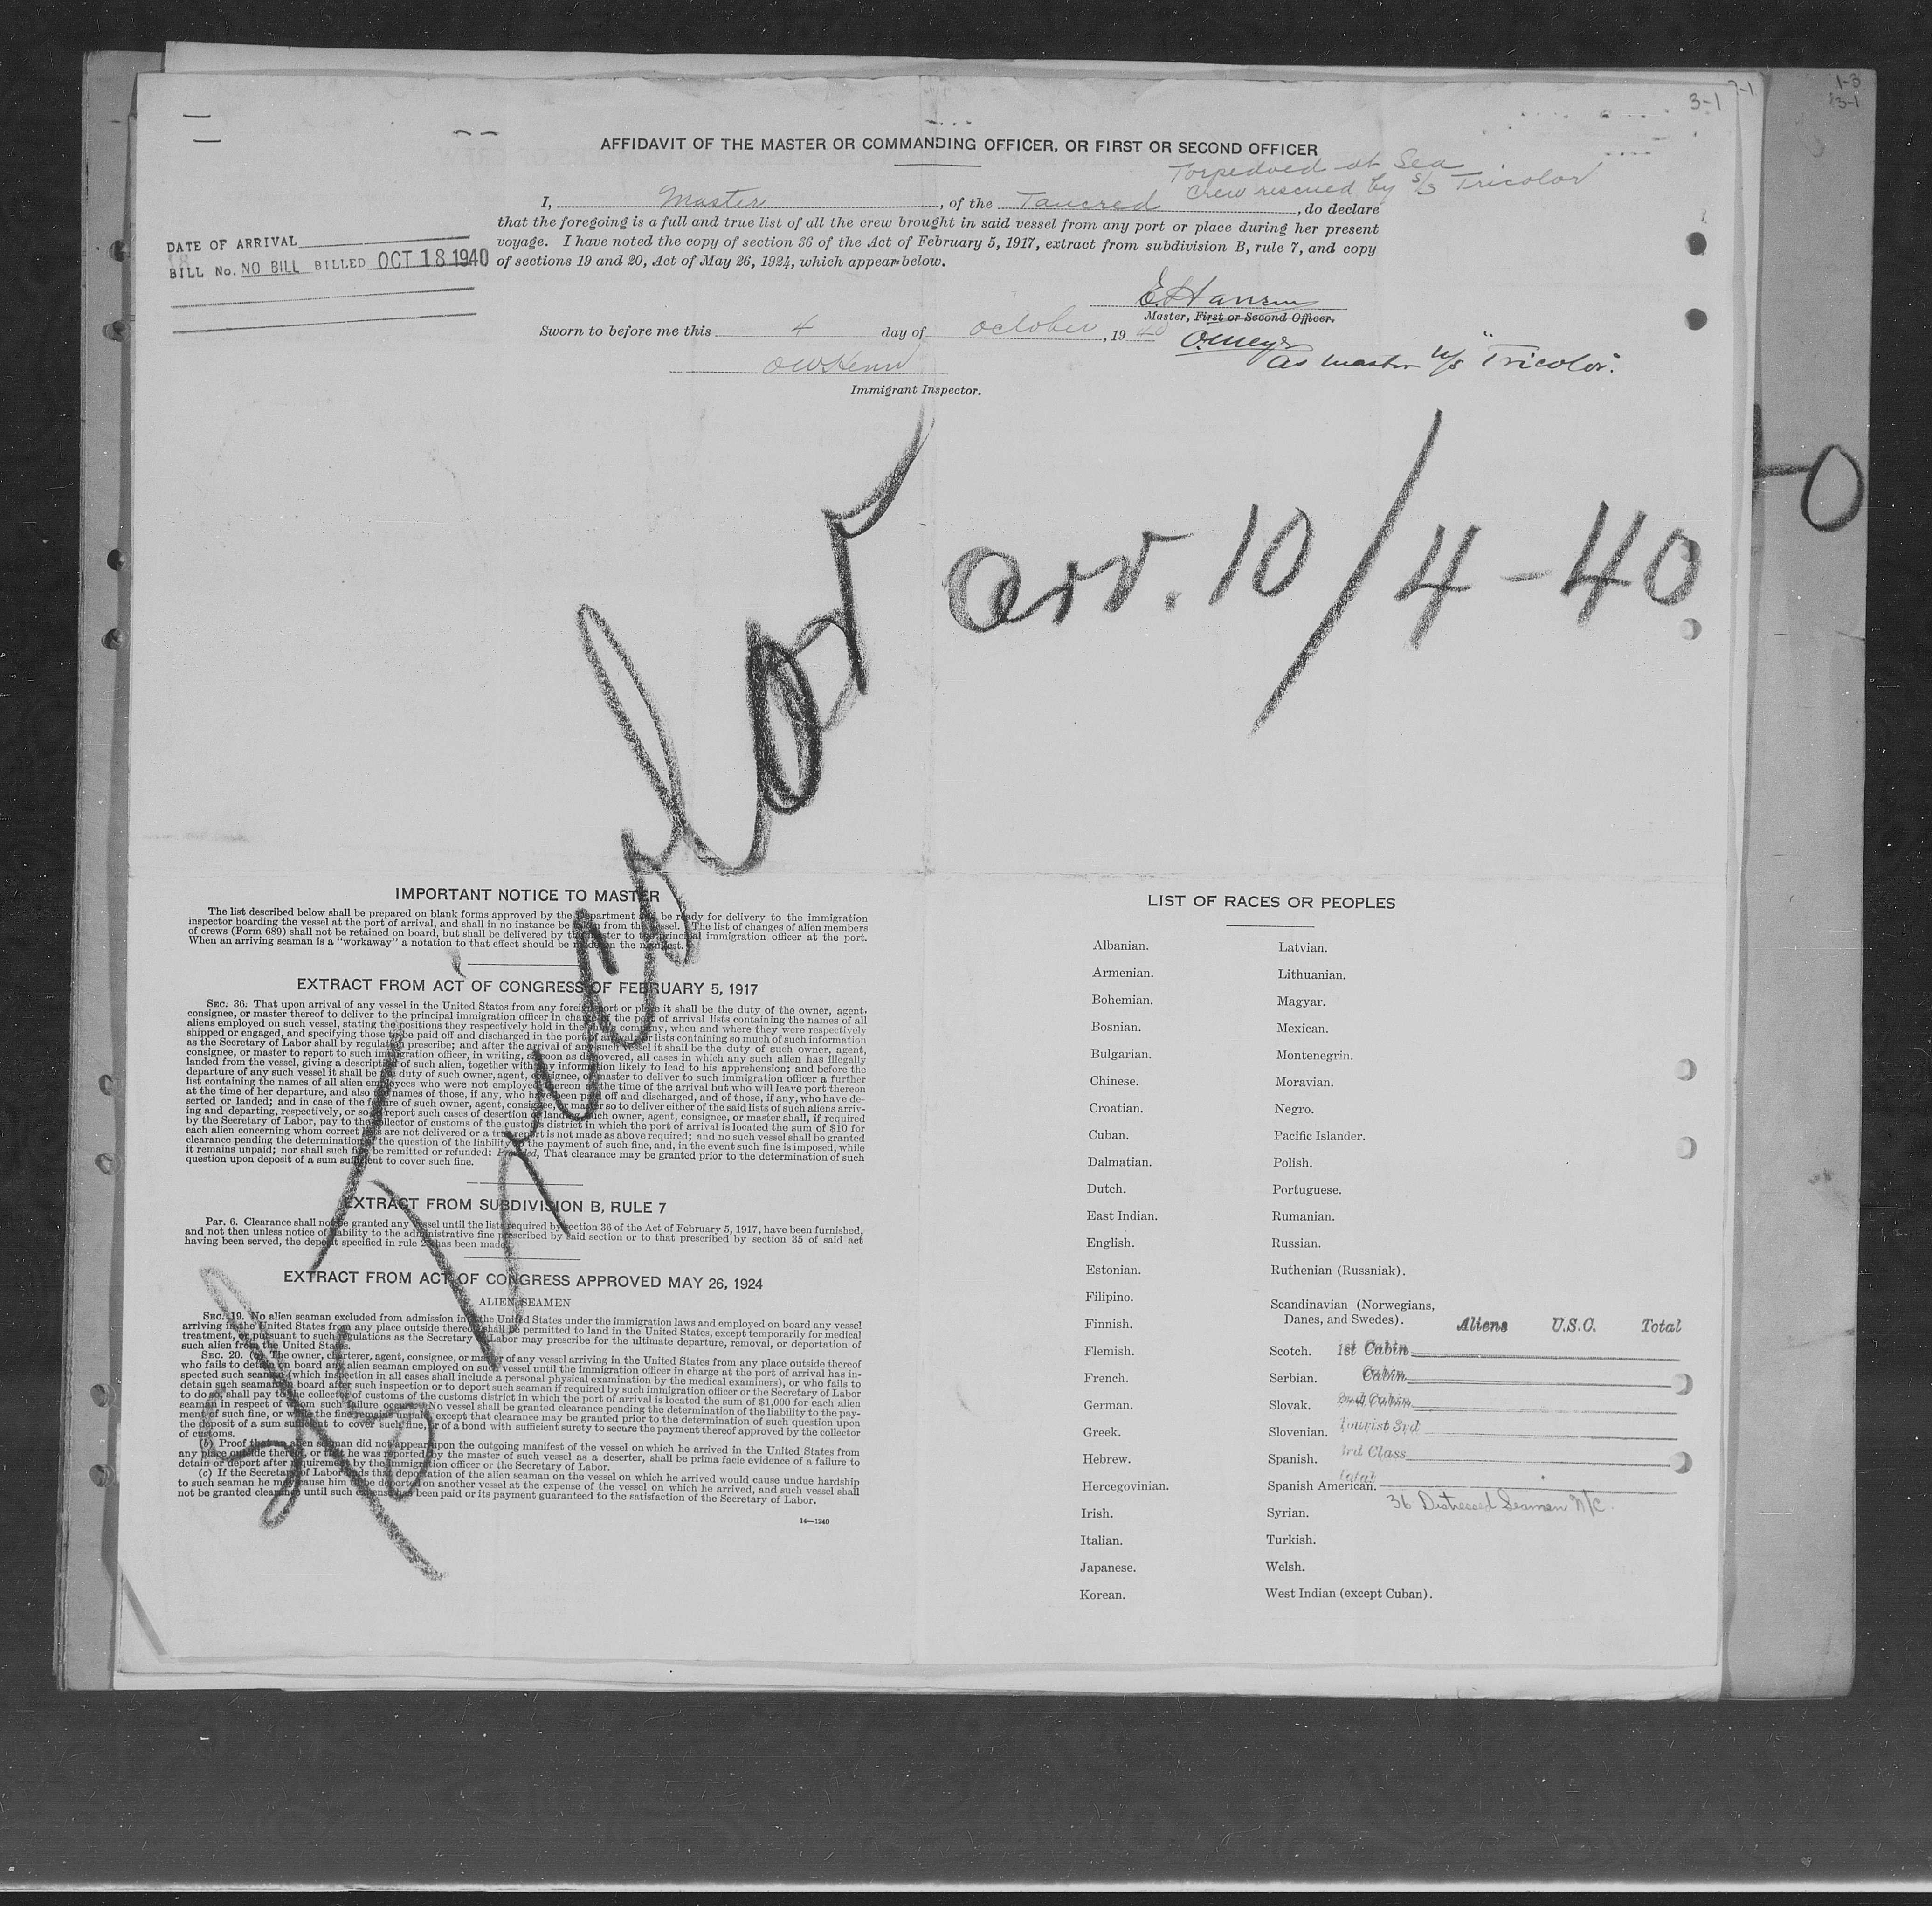 3-1
7-1
1-3
13-1
AFFIDAVIT OF THE MASTER OR COMMANDING OFFICER, OR FIRST OR SECOND OFFICER
Torpedoed at Sea
Crew rescued by S/S Tricolor
I, Master, of the Tancred, do declare
that the foregoing is a full and true list of all the crew brought in said vessel from any port or place during her present
voyage. I have noted the copy of section 36 of the Act of February 5, 1917, extract from subdivision B, rule 7, and copy
of sections 19 and 20, Act of May 26, 1924, which appear below.
DATE OF ARRIVAL
BILL No. NO BILL BILLED OCT 18 1940
E. Hansen
Master, First or Second Officer.
Sworn to before me this 4 day of October, 1940
O. Meyer
as master M/S "Tricolor".
OWHenn
Immigrant Inspector.
S/S Tricolor
arr. 10/4-40
IMPORTANT NOTICE TO MASTER
The list described below shall be prepared on blank forms approved by the Department and be ready for delivery to the immigration
inspector boarding the vessel at the port of arrival, and shall in no instance be taken from the vessel. The list of changes of alien members
of crews (Form 689) shall not be retained on board, but shall be delivered by the master to the principal immigration officer at the port.
When an arriving seaman is a "workaway" a notation to that effect should be made on the manifest.
EXTRACT FROM ACT OF CONGRESS OF FEBRUARY 5, 1917
SEC. 36. That upon arrival of any vessel in the United States from any foreign port or place it shall be the duty of the owner, agent,
consignee, or master thereof to deliver to the principal immigration officer in charge of the port of arrival lists containing the names of all
aliens employed on such vessel, stating the positions they respectively hold in the ship's company, when and where they were respectively
shipped or engaged, and specifying those to be paid off and discharged in the port of arrival; or lists containing so much of such information
as the Secretary of Labor shall by regulation prescribe; and after the arrival of any such vessel it shall be the duty of such owner, agent,
consignee, or master to report to such immigration officer, in writing, as soon as discovered, all cases in which any such alien has illegally
landed from the vessel, giving a description of such alien, together with any information likely to lead to his apprehension; and before the
departure of any such vessel it shall be the duty of such owner, agent, consignee, or master to deliver to such immigration officer a further
list containing the names of all alien employees who were not employed thereon at the time of the arrival but who will leave port thereon
at the time of her departure, and also the names of those, if any, who have been paid off and discharged, and of those, if any, who have de-
serted or landed; and in case of the failure of such owner, agent, consignee, or master so to deliver either of the said lists of such aliens arriv-
ing and departing, respectively, or so to report such cases of desertion or landing, such owner, agent, consignee, or master shall, if required
by the Secretary of Labor, pay to the collector of customs of the customs district in which the port of arrival is located the sum of $10 for
each alien concerning whom correct lists are not delivered or a true report is not made as above required; and no such vessel shall be granted
clearance pending the determination of the question of the liability to the payment of such fine, and, in the event such fine is imposed, while
it remains unpaid; nor shall such fine be remitted or refunded: Provided, That clearance may be granted prior to the determination of such
question upon deposit of a sum sufficient to cover such fine.
EXTRACT FROM SUBDIVISION B, RULE 7
Par. 6. Clearance shall not be granted any vessel until the lists required by section 36 of the Act of February 5, 1917, have been furnished,
and not then unless notice of liability to the administrative fine prescribed by said section or to that prescribed by section 35 of said act
having been served, the deposit specified in rule 28 has been made.
EXTRACT FROM ACT OF CONGRESS APPROVED MAY 26, 1924
ALIEN SEAMEN
SEC. 19. No alien seaman excluded from admission into the United States under the immigration laws and employed on board any vessel
arriving in the United States from any place outside thereof shall be permitted to land in the United States, except temporarily for medical
treatment, or pursuant to such regulations as the Secretary of Labor may prescribe for the ultimate departure, removal, or deportation of
such alien from the United States.
SEC. 20. (a) The owner, charterer, agent, consignee, or master of any vessel arriving in the United States from any place outside thereof
who fails to detain on board any alien seaman employed on such vessel until the immigration officer in charge at the port of arrival has in-
spected such seaman (which inspection in all cases shall include a personal physical examination by the medical examiners), or who fails to
detain such seaman on board after such inspection or to deport such seaman if required by such immigration officer or the Secretary of Labor
to do so, shall pay to the collector of customs of the customs district in which the port of arrival is located the sum of $1,000 for each alien
seaman in respect of whom such failure occurs. No vessel shall be granted clearance pending the determination of the liability to the pay-
ment of such fine, or while the fine remains unpaid, except that clearance may be granted prior to the determination of such question upon
the deposit of a sum sufficient to cover such fine, or of a bond with sufficient surety to secure the payment thereof approved by the collector
of customs.
(b) Proof that an alien seaman did not appear upon the outgoing manifest of the vessel on which he arrived in the United States from
any place outside thereof, or that he was reported by the master of such vessel as a deserter, shall be prima facie evidence of a failure to
detain or deport after requirement by the immigration officer or the Secretary of Labor.
(c) If the Secretary of Labor finds that deportation of the alien seaman on the vessel on which he arrived would cause undue hardship
to such seaman he may cause him to be deported on another vessel at the expense of the vessel on which he arrived, and such vessel shall
not be granted clearance until such expense has been paid or its payment guaranteed to the satisfaction of the Secretary of Labor.
14—1240
LIST OF RACES OR PEOPLES
Albanian.
Armenian.
Bohemian.
Bosnian.
Bulgarian.
Chinese.
Croatian.
Cuban.
Dalmatian.
Dutch.
East Indian.
English.
Estonian.
Filipino.
Finnish.
Flemish.
French.
German.
Greek.
Hebrew.
Hercegovinian.
Irish.
Italian.
Japanese.
Korean.
Latvian.
Lithuanian.
Magyar.
Mexican.
Montenegrin.
Moravian.
Negro.
Pacific Islander.
Polish.
Portuguese.
Rumanian.
Russian.
Ruthenian (Russniak).
Scandinavian (Norwegians,
Danes, and Swedes).
Scotch.
Serbian.
Slovak.
Slovenian.
Spanish.
Spanish American.
Syrian.
Turkish.
Welsh.
West Indian (except Cuban).
Aliens U.S.C. Total
1st Cabin
Cabin
2nd Cabin
Tourist 3rd
3rd Class
Total
36 Distressed Seamen N/C.